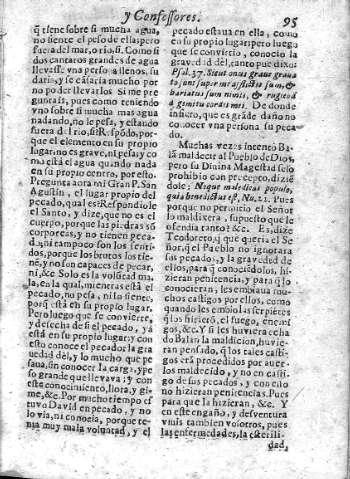 y Confessores. 95
q̃ tiene sobre si mucha agua,
no siente el peso de ella: pero
fuera del mar, o rio, si. Como si
dos cantaros grandes de agua
llevasse vna persona llenos, su
daria, y se cãsaria mucho por
no poder llevarlos Si me pre
guntais, pues como teniendo
vno sobre si mucha mas agua
nadando, no le pesa, y estando
fuera del rio, si? R. spõdo, por-
que el elemento en su proprio
lugar no es grave, ni pesa, y co
mo està el agua quando nada
en su propio centro, por esto.
Pregunta aora mi Gran P. San
Agustin, el lugar propio del
pecado, qual es? Respondole
el Santo, y dize, que no es el
cuerpo, porque las piedras sõ
corporeas, y no tienen peca-
do, ni tampoco son los senti-
dos, porque los brutos los tie
ne, y no son capaces de pecar,
ni, &c Solo es la volũtad ma
la, en la qual, mientras està el
pecado, no pesa, ni lo siente,
porq̃ està en su propio lugar.
Pero luego que se convierte,
y desecha de si el pecado, yà
està en su propio lugar: y con
esto conoce el pecador la gra
uedad dèl, y lo mucho que pe
saua, sin conocer la carga, y pe
so grande que llevaua; y con
este conocimiento, llora, y gi-
me, &c. Por mucho tiempo es
tuvo David en pecado, y no
lo via, ni conocia, porque te-
nia muy mala voluntad, y el
pecado estaua en ella, como
en su propio lugar: pero luego
que se convirtio, conocio la
gravedad dèl, tanto que dixo:
Psal. 37. Sicut onus graue graua
ta sunt super me: afflictus sum, &
humiliatus sum nimis, & rugiebã
à gemitu cordis mei. De donde
infiero, que es grãde daño no
conocer vna persona su peca
do.
Muchas vezes intentò Ba-
làn maldecir al Pueblo de Dios,
pero su Diuina Magestad se lo
prohibiò con precepto, dizié
dole: Neque maledicas populo,
quia benedictus est, Nu. 22. Pues
porque no permitio el Señor
lo maldixera, supuesto que le
ofendia tanto? &c. Es, dize
Teodoreto, q̃ que queria el Se
ñor, q̃ el Pueblo no ignorara
sus pecados, y la gravedad de
ellos, para q̃ conociendolos, hi-
zieran penitencia, y para q̃ lo
conocieran, les embiaua mu-
chos castigos por ellos, como
quando les embio las serpiétes
q̃ los hirierõ, el fuego, enemi-
gos, &c. Y si les huviera echa
do Balàn la maldicion, huvie-
ran pensado, q̃ los tales casti-
gos erã procedidos por auer-
los maldecido, y no en casti-
go de sus pecados, y con ello
no hizieran penitencias. Pues
para que la hizieran, &c. Y
en este engaño, y desventura
vivis tambien vosotros, pues
las enfermedades, la esterili-
dad,